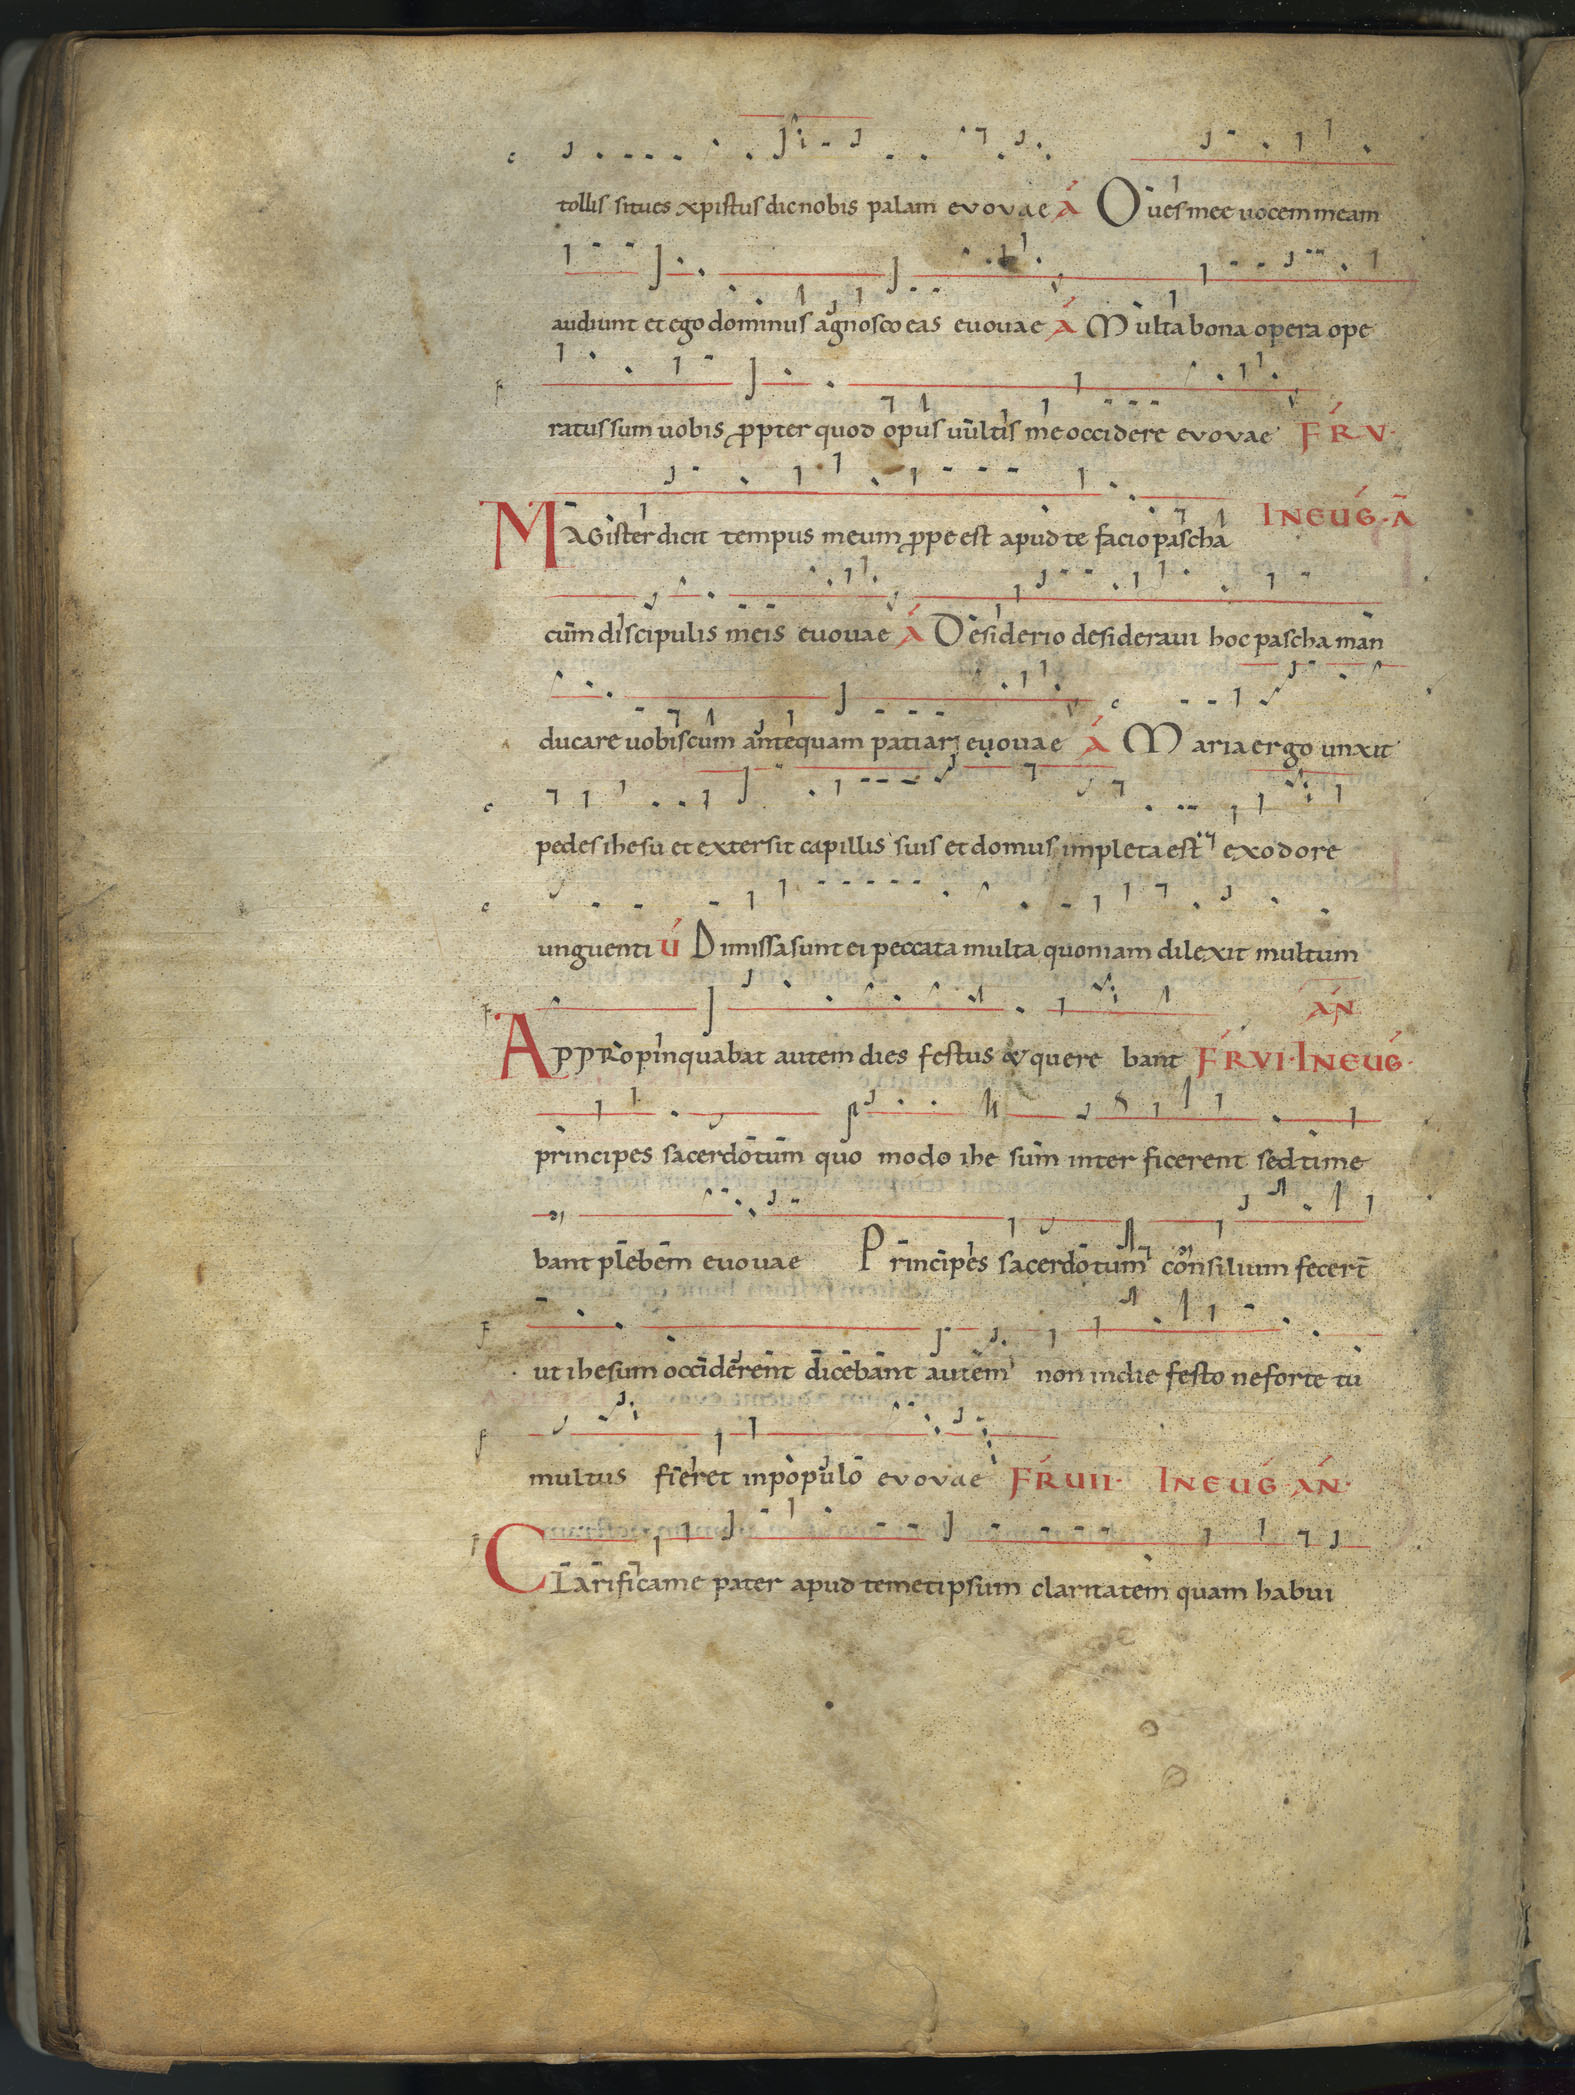 tollis situes xpistus dicnobis palam evovae Á Oues mee uocem meam
audiunt et ego dominus agnosco eas euouae Á Multa bona opera ope
ratus sum uobis ꝓpter quod opus uultis me occidere evovae FR V·
Magister dicit tempus meum ꝓpe est apud te facio pascha IN EUG· Ā
cum discipulis meis euouae Á Desiderio desideraui hoc pascha man
ducare uobiscum antequam patiar euouae Á Maria ergo unxit
pedes ihesu et extersit capillis suis et domus impleta est exodore
unguenti Ú Dimissa sunt ei peccata multa quoniam dilexit multum
Appropinquabat autem dies festus & quere bant FR VI· IN EUG· ÁN
principes sacerdotum quo modo ihe sum inter ficerent sed time
bant plebem euouae Principes sacerdotum consilium fecert̄
ut ihesum occiderent dicebant autem non indie festo neforte tu
multus fieret inpopulo evovae FR VII· IN EUG ÁN·
Clarifica me pater apud temetipsum claritatem quam habui